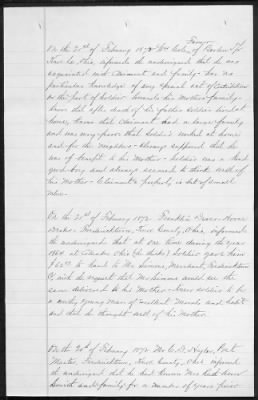 Farmer
On the 20th of February 1872 Wm Coler, of Berlin Tp
Knox Co. Ohio, informed the undersigned that he was
acquainted with Claimant and family - has no
particular knowledge of any special act of contribution
on the part of soldier towards his Mother & family -
knows that after death of his father soldier lived at
home, knows that Claimant had a large family
and was very poor that soldier worked at home
and for the neighbors - Always supposed that he
was of benefit to his Mother - Soldier was a kind
good boy and always seemed to think well of
his Mother - Claimant's property is but of small
value.
On the 20th of February 1872. Franklin
Fredericktown, Knox County, Ohio, informed
the undersigned that at one time during the year
1864 at Columbus Ohio (he thinks) Soldier gave him
to hand to Mr Simons, Merchant, Fredericktown
O. with the request that Mr Simons would see the
same delivered to his Mother - Knew soldier to be
a worthy young man of excellent Morals and habit
and that he thought well of his Mother.
On the 20th of February 1872 Mr C. D. Hyler, Post
Master, Fredericktown, Knox County, Ohio informed
the undersigned that he had known Mrs
and family for a number of years prior